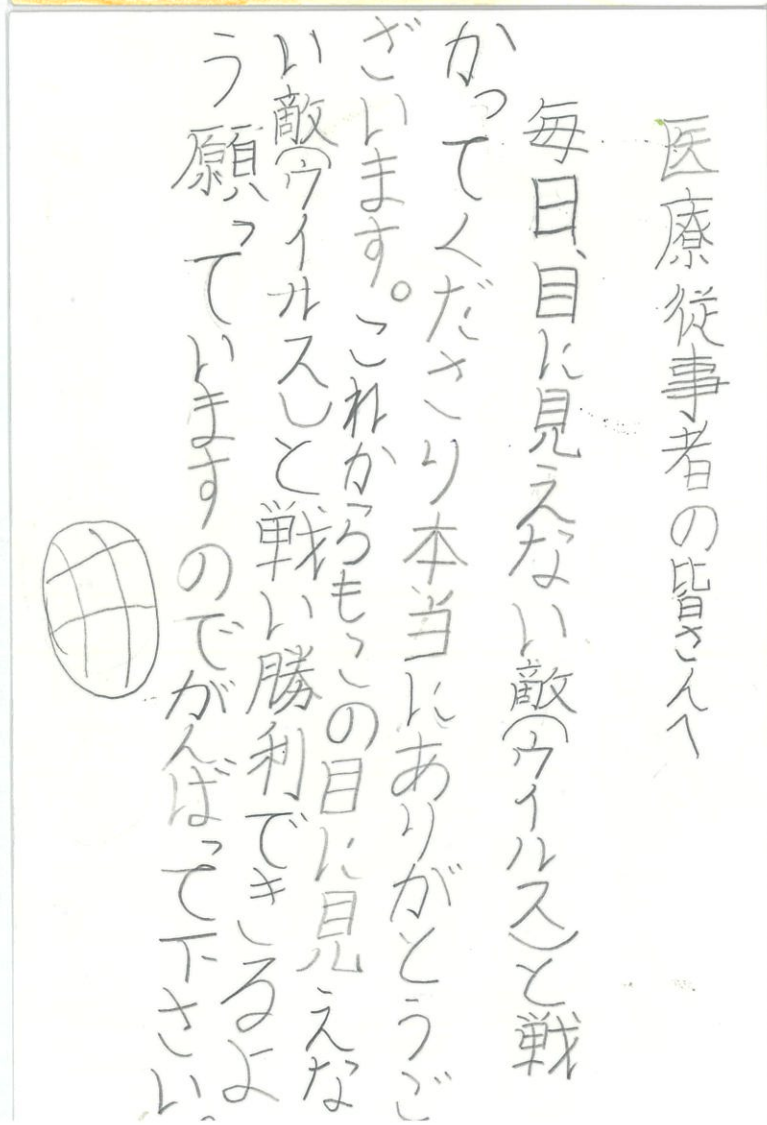 医療従事者の皆さんへ
毎日、目に見えない敵(ウイルス)と戦
かってくださり本当にありがとうご
ざいます。これからもこの目に見えな
い敵(ウイルス)と戦い勝利できるよ
う願っていますのでがんばって下さい。